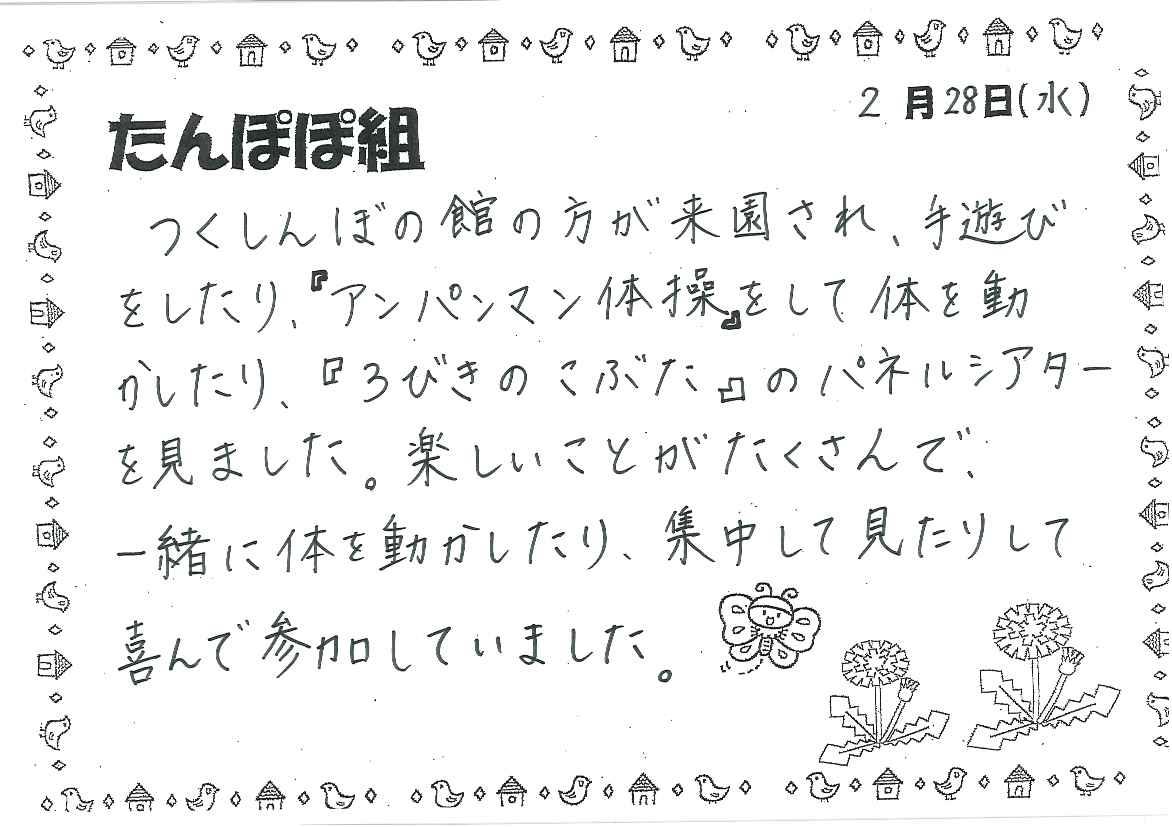 2月28日(水)
たんぽぽ組
つくしんぼの館の方が来園され、手遊び
をしたり、『アンパンマン体操』をして体を動
かしたり、『3びきのこぶた』のパネルシアター
を見ました。楽しいことがたくさんで、
一緒に体を動かしたり、集中して見たりして
喜んで参加していました。